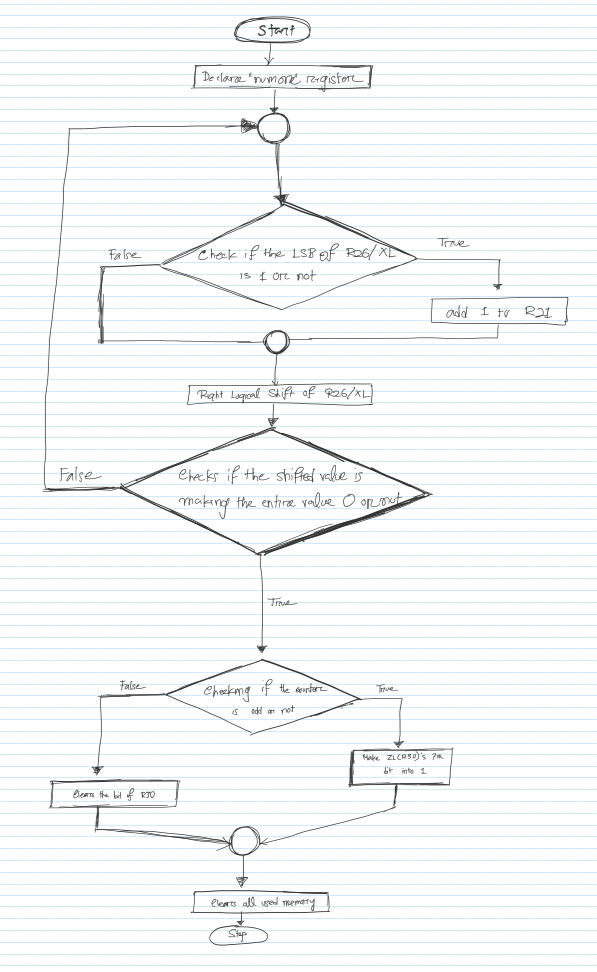 Start
Declare "numone" register
Check if the LSB of R26/XL
is 1 or not
False
True
add 1 to R21
Right Logical Shift of R26/XL
Checks if the shifted value is
making the entire value 0 or not
False
True
Checking if the counter
is odd or not
False
True
Make ZL(R30)'s 7th
bit into 1
Clears the bit of R30
Clears all used memory
Stop